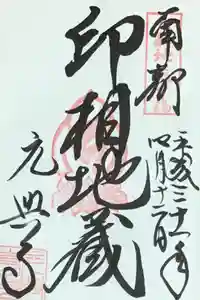 南都
平成三十一年
四月十二日
印相地蔵
元興寺